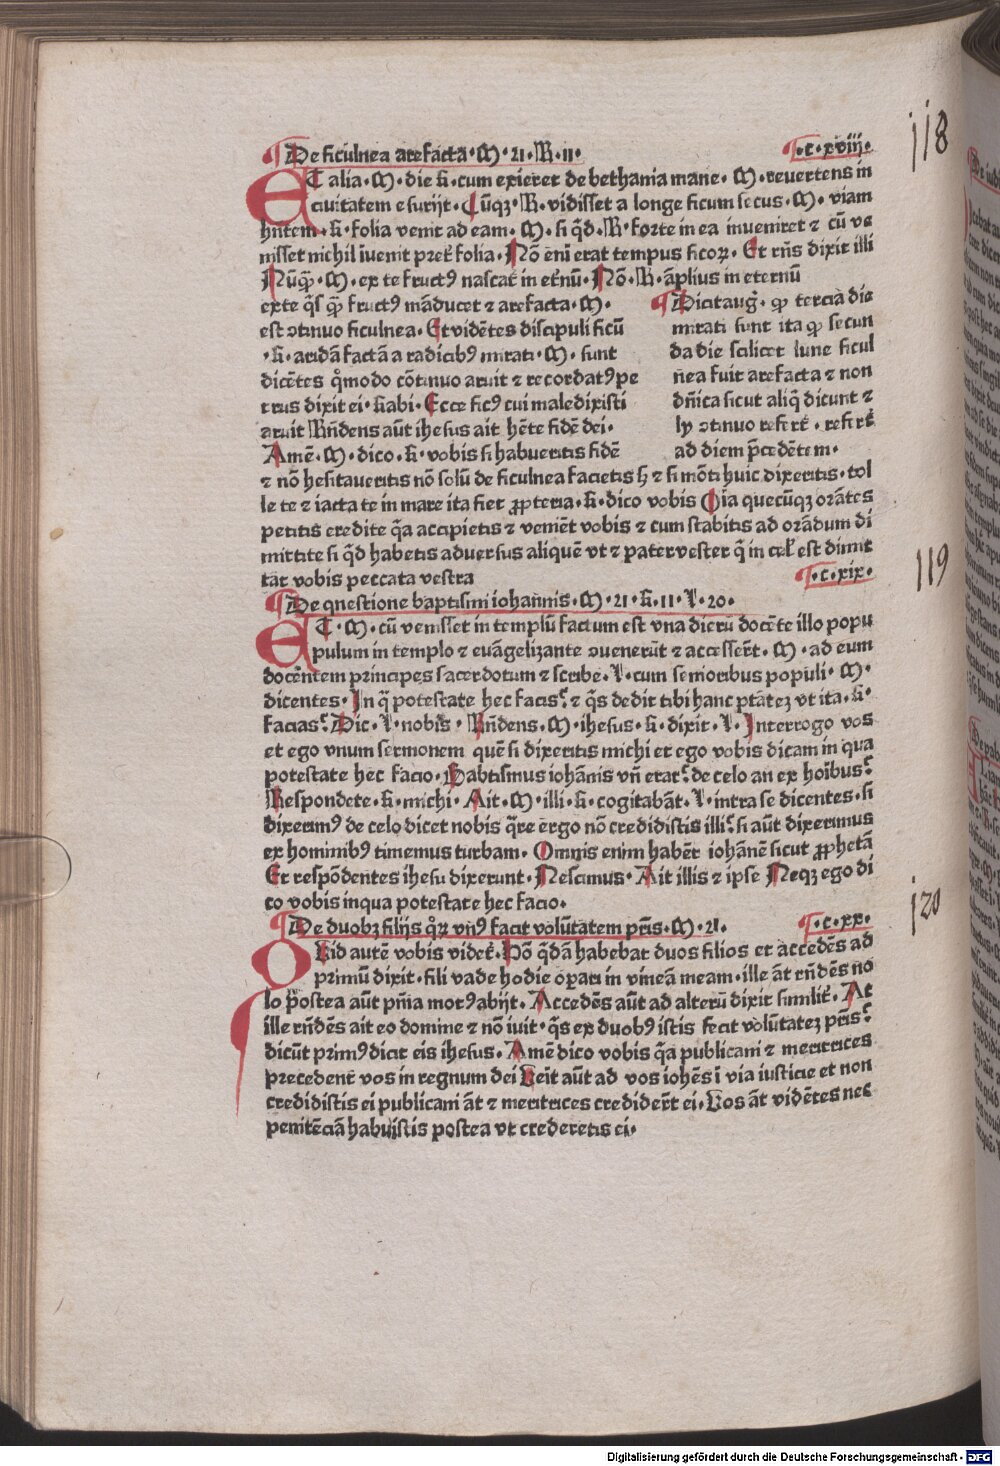 De ficulnea arefacta · M · 21 · R · 11 ·
· c · xviij ·
118
ET alia · M · die · R · cum exieret de bethania mane · M · reuertens in
ciuitatem esurijt · Cūqꝫ · R · vidisset a longe ficum secus · M · viam
hñtem · R · folia venit ad eam · M · si qͥd · R · forte in ea inueniret ⁊ cū ve
nisset nichil īuenit pret̄ folia · Nō enī erat tempus ficoꝝ · Et rñs dixit illi
Nūꝙ̄ · M · ex te fructꝰ nascat̄ in et̄nū · Nō · R · āplius in eternū
exte q̄s ꝙ̄ fructꝰ māducet ⁊ arefacta · M ·
est ↄtinuo ficulnea · Et vidētes discipuli ficū
· R · aridā factā a radicibꝰ mirati · M · sunt
dicētes qͦmodo cōtinuo aruit ⁊ recordatꝰ pe
trus dixit ei · Rabi · Ecce ficꝰ cui maledixisti
aruit Rñdens aūt ihesus ait hēte fidē dei ·
Amē · M · dico · R · vobis si habueritis fidē
Dicit auḡ · ꝙ tercia die
mirati sunt ita ꝙ secun
da die scilicet lune ficul
nea fuit arefacta ⁊ non
dñica sicut aliq̄ dicunt ⁊
ly ↄtinuo refert̄ · refert̄
ad diem p̄cedētem ·
⁊ nō hesitaueritis nō solū de ficulnea facietis hꝫ ⁊ si mōti huic dixeritis · tol
le te ⁊ iacta te in mare ita fiet ꝓpterea · R · dico vobis Oīa quecūqꝫ orātes
petitis credite q̄a accipietis ⁊ veniēt vobis ⁊ cum stabitis ad orādum di
mittite si qͥd habetis aduersus aliquē vt ⁊ pater vester q̄ in cel̄ est dimit
tat vobis peccata vestra
· c · xix ·
119
De questione baptismi iohannis · M · 21 · R · 11 · L · 20 ·
ET · M · cū venisset in templū factum est vna dierū docēte illo popu
pulum in templo ⁊ euāgelizante ↄuenerūt ⁊ accesser̄t · M · ad eum
docentem principes sacerdotum ⁊ scribe · L · cum senioribus populi · M ·
dicentes · In q̄ potestate hec facis? ⁊ q̄s dedit tibi hanc ptātez vt ita · R ·
facias? Dic · L · nobis · Rñdens · M · ihesus · R · dixit · L · Interrogo vos
et ego vnum sermonem quē si dixeritis michi et ego vobis dicam in qua
potestate hec facio · Babtismus iohānis vñ erat? de celo an ex hoībus?
Respondete · R · michi · Ait · M · illi · R · cogitabāt · L · intra se dicentes · si
dixerimꝰ de celo dicet nobis q̄re ergo nō credidistis illi? si aūt dixerimus
ex hominibꝰ timemus turbam · Omnis enim haber iohānē sicut ꝓphetā
Et respōdentes ihesu dixerunt · Nescimus · Ait illis ⁊ ipse Neqꝫ ego di
co vobis inqua potestate hec facio ·
De duobꝫ filijs qͦꝝ vnꝰ facit volūtatem pr̄is · M · 21 ·
· c · xx ·
120
QUid autē vobis videt̄ · Hō q̄dā habebat duos filios et accedēs ad
primū dixit · fili vade hodie oꝑari in vineā meam · ille āt rñdēs no
lo postea aūt pñia motꝰ abijt · Accedēs aūt ad alterū dixit similit̄ · At
ille rñdēs ait eo domine ⁊ nō iuit · q̄s ex duobꝰ istis fecit volūtatez pr̄is?
dicūt primꝰ dicit eis ihesus · Amē dico vobis q̄a publicani ⁊ meritrices
precedent vos in regnum dei Ueit aūt ad vos iohēs ī via iusticie et non
credidistis ei publicani āt ⁊ meritrices credider̄t ei · Uos āt vidētes nec
penitēciā habuistis postea vt crederetis ei ·
Digitalisierung gefördert durch die Deutsche Forschungsgemeinschaft - DFG